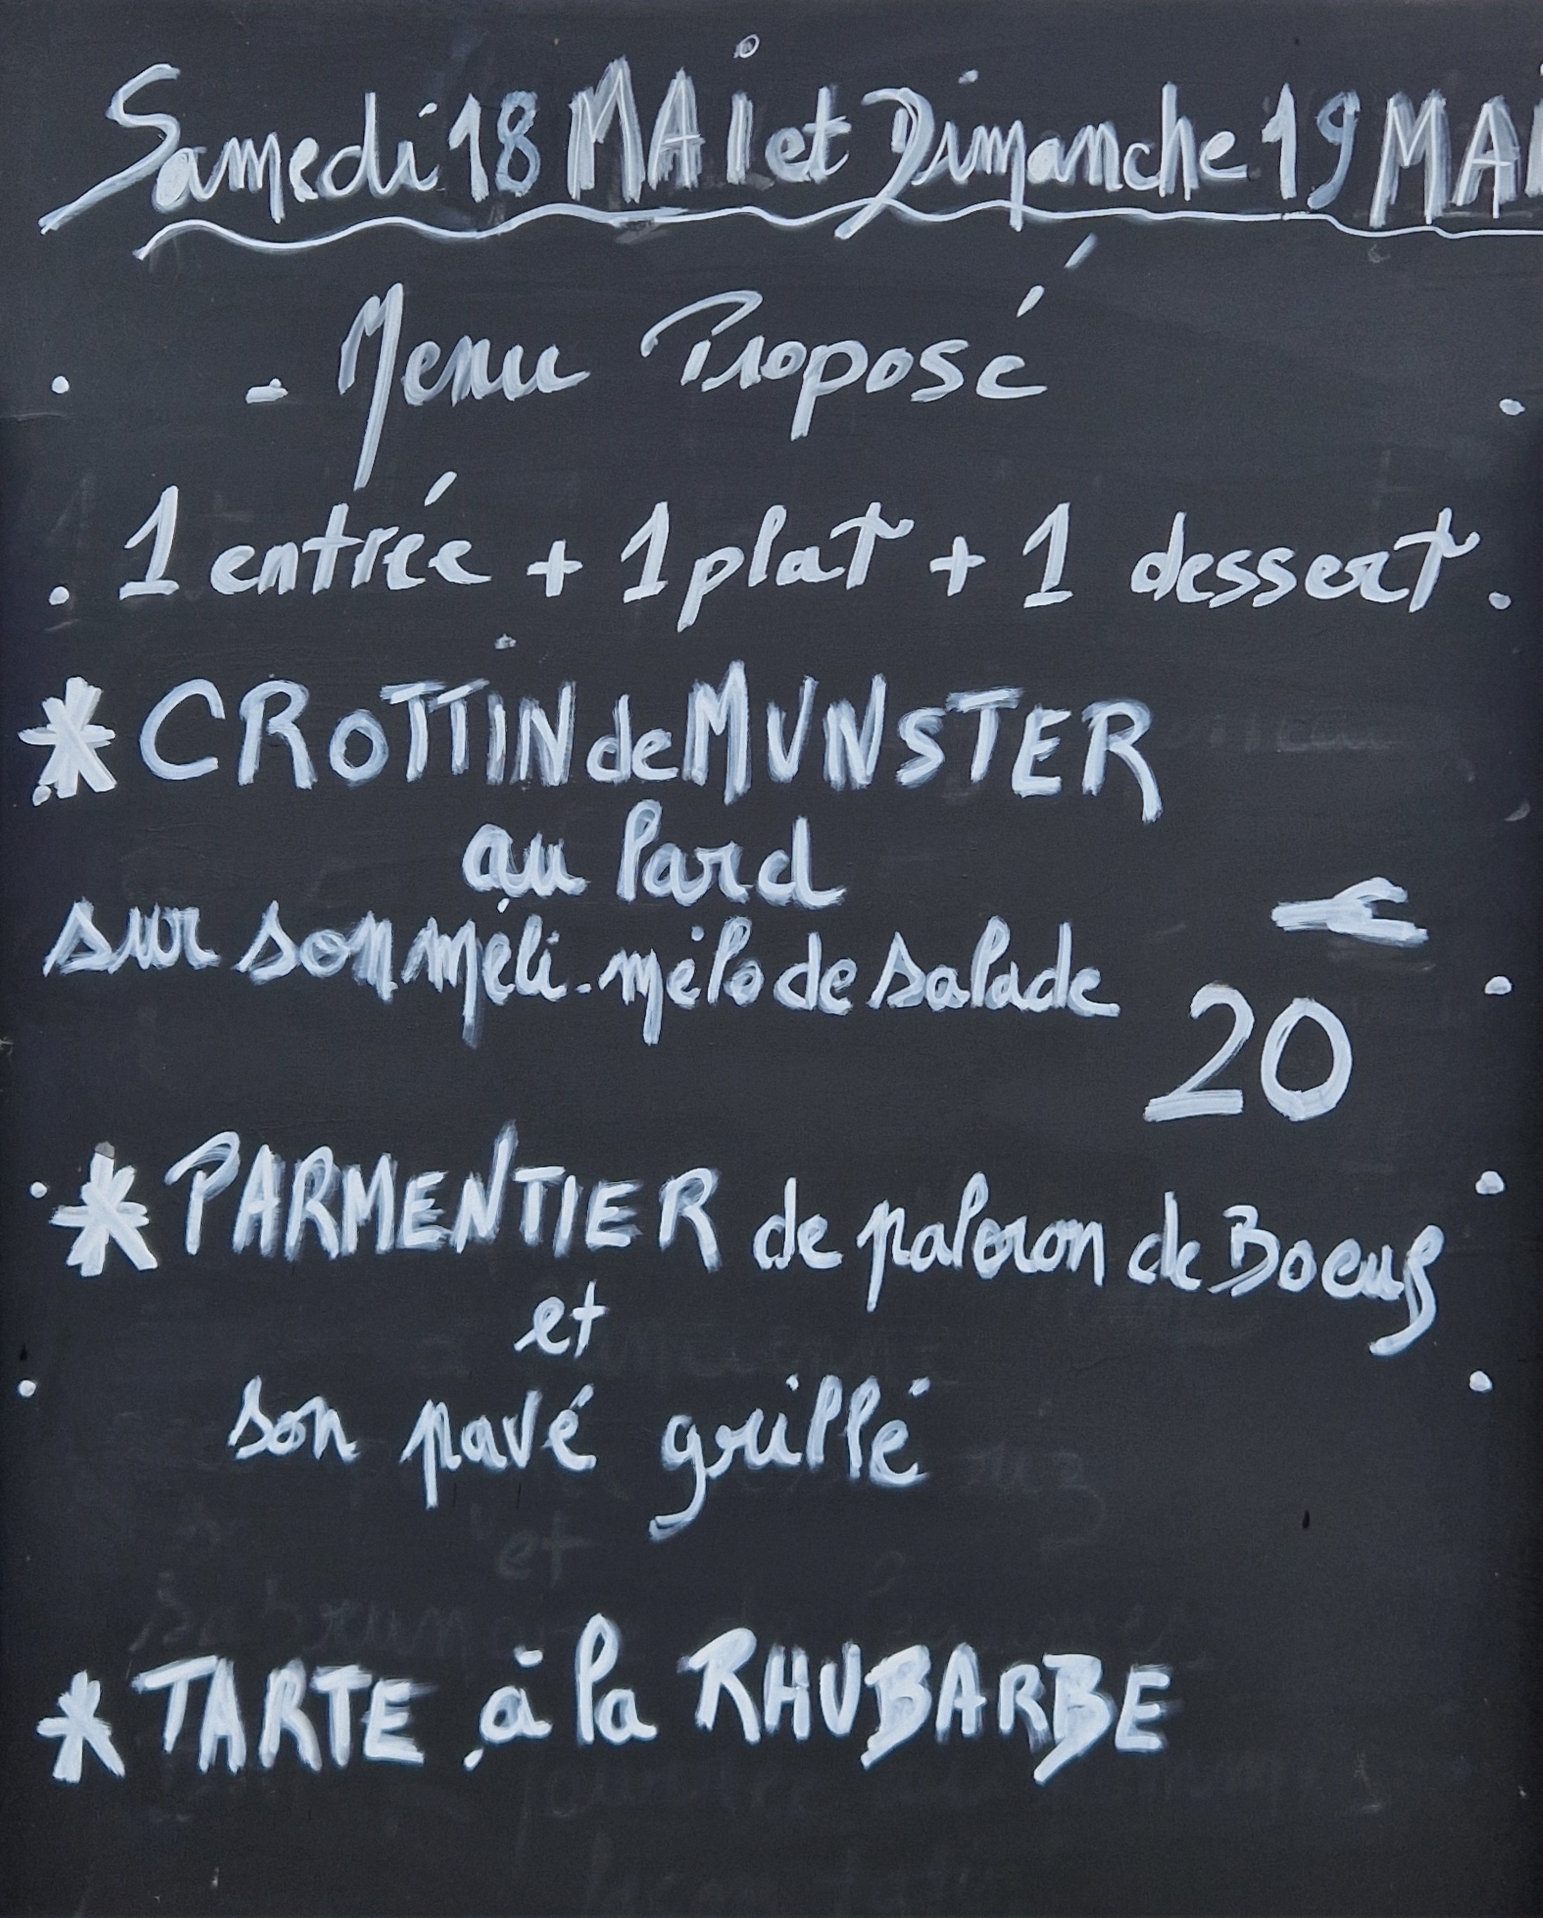 Samedi 18 MAI et Dimanche 19 MAI
- Menu Proposé
1 entrée + 1 plat + 1 dessert.
* CROTTIN de MUNSTER
au lard
sur son méli-mélo de salade
€
20
* PARMENTIER de paleron de Boeuf
et
son pavé grillé
* TARTE à la RHUBARBE